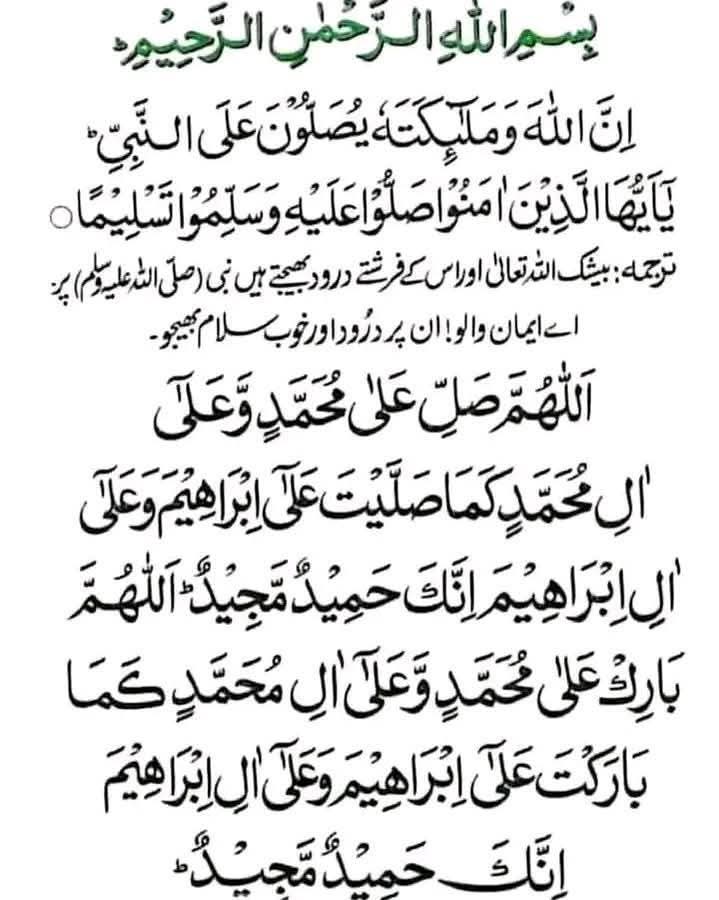 بِسْمِ اللهِ الرَّحْمٰنِ الرَّحِيْمِؕ
اِنَّ اللهَ وَمَلٰٓئِكَتَهٗ يُصَلُّوْنَ عَلَى النَّبِيِّؕ
يٰۤاَيُّهَا الَّذِيْنَ اٰمَنُوْا صَلُّوْا عَلَيْهِ وَسَلِّمُوْا تَسْلِيْمًا○
ترجمہ: بیشک اللہ تعالیٰ اور اس کے فرشتے درود بھیجتے ہیں نبی (صلّی اللہ علیہ وسلم) پر:
اے ایمان والو! ان پر درُود اور خوب سلام بھیجو۔
اَللّٰهُمَّ صَلِّ عَلٰى مُحَمَّدٍ وَّعَلٰٓى
اٰلِ مُحَمَّدٍ كَمَا صَلَّيْتَ عَلٰٓى اِبْرَاهِيْمَ وَعَلٰٓى
اٰلِ اِبْرَاهِيْمَ اِنَّكَ حَمِيْدٌ مَّجِيْدٌؕ اَللّٰهُمَّ
بَارِكْ عَلٰى مُحَمَّدٍ وَّعَلٰٓى اٰلِ مُحَمَّدٍ كَمَا
بَارَكْتَ عَلٰٓى اِبْرَاهِيْمَ وَعَلٰٓى اٰلِ اِبْرَاهِيْمَ
اِنَّكَ حَمِيْدٌ مَّجِيْدٌؕ